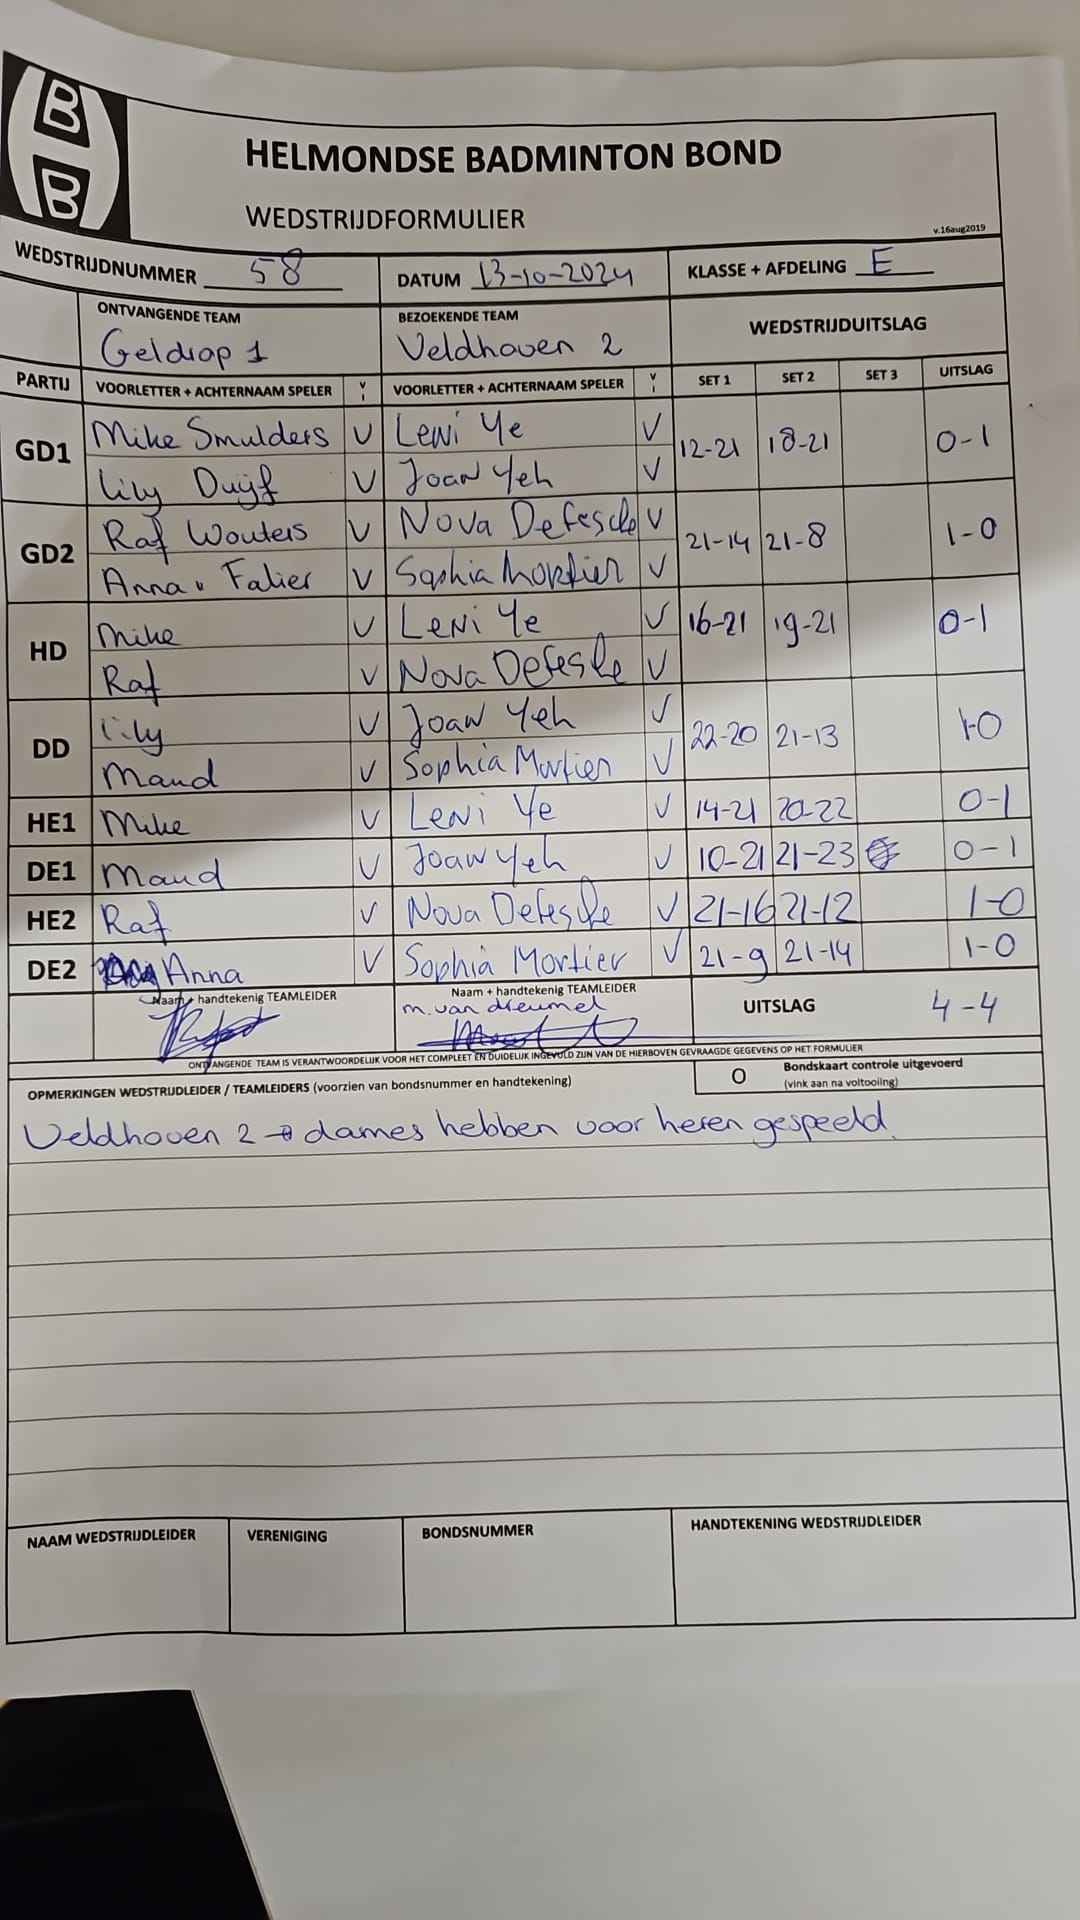 B
B
HELMONDSE BADMINTON BOND
WEDSTRIJDFORMULIER
v.16aug2019
WEDSTRIJDNUMMER 58 DATUM 13-10-2024 KLASSE + AFDELING E
ONTVANGENDE TEAM BEZOEKENDE TEAM WEDSTRIJDUITSLAG
Geldrop 1 Veldhoven 2
PARTIJ VOORLETTER + ACHTERNAAM SPELER V I VOORLETTER + ACHTERNAAM SPELER V I SET 1 SET 2 SET 3 UITSLAG
GD1 Mike Smulders V Leni Ye V 12-21 18-21 0-1
Lily Duijf V Joan Yeh V
GD2 Raf Wouters V Nova Defesche V 21-14 21-8 1-0
Anna v Falier V Sophia Mortier V
HD Mike V Leni Ye V 16-21 19-21 0-1
Raf V Nova Defesche V
DD Lily V Joan Yeh V 22-20 21-13 1-0
Maud V Sophia Mortier V
HE1 Mike V Leni Ye V 14-21 20-22 0-1
DE1 Maud V Joan Yeh V 10-21 21-23 0-1
HE2 Raf V Nova Defesche V 21-16 21-12 1-0
DE2 Anna V Sophia Mortier V 21-9 21-14 1-0
Naam + handtekenig TEAMLEIDER Naam + handtekenig TEAMLEIDER UITSLAG 4-4
m. van dreumel
ONTVANGENDE TEAM IS VERANTWOORDELIJK VOOR HET COMPLEET EN DUIDELIJK INGEVULD ZIJN VAN DE HIERBOVEN GEVRAAGDE GEGEVENS OP HET FORMULIER
OPMERKINGEN WEDSTRIJDLEIDER / TEAMLEIDERS (voorzien van bondsnummer en handtekening) O Bondskaart controle uitgevoerd
(vink aan na voltooiing)
Veldhoven 2 → dames hebben voor heren gespeeld.
NAAM WEDSTRIJDLEIDER VERENIGING BONDSNUMMER HANDTEKENING WEDSTRIJDLEIDER